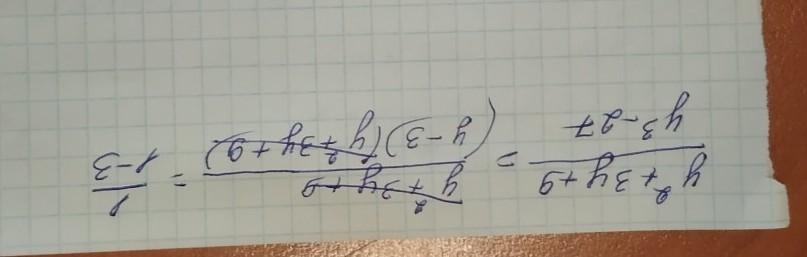 (y² + 3y + 9)/(y³ - 27) = (y² + 3y + 9)/((y - 3)(y² + 3y + 9)) = 1/(y - 3)